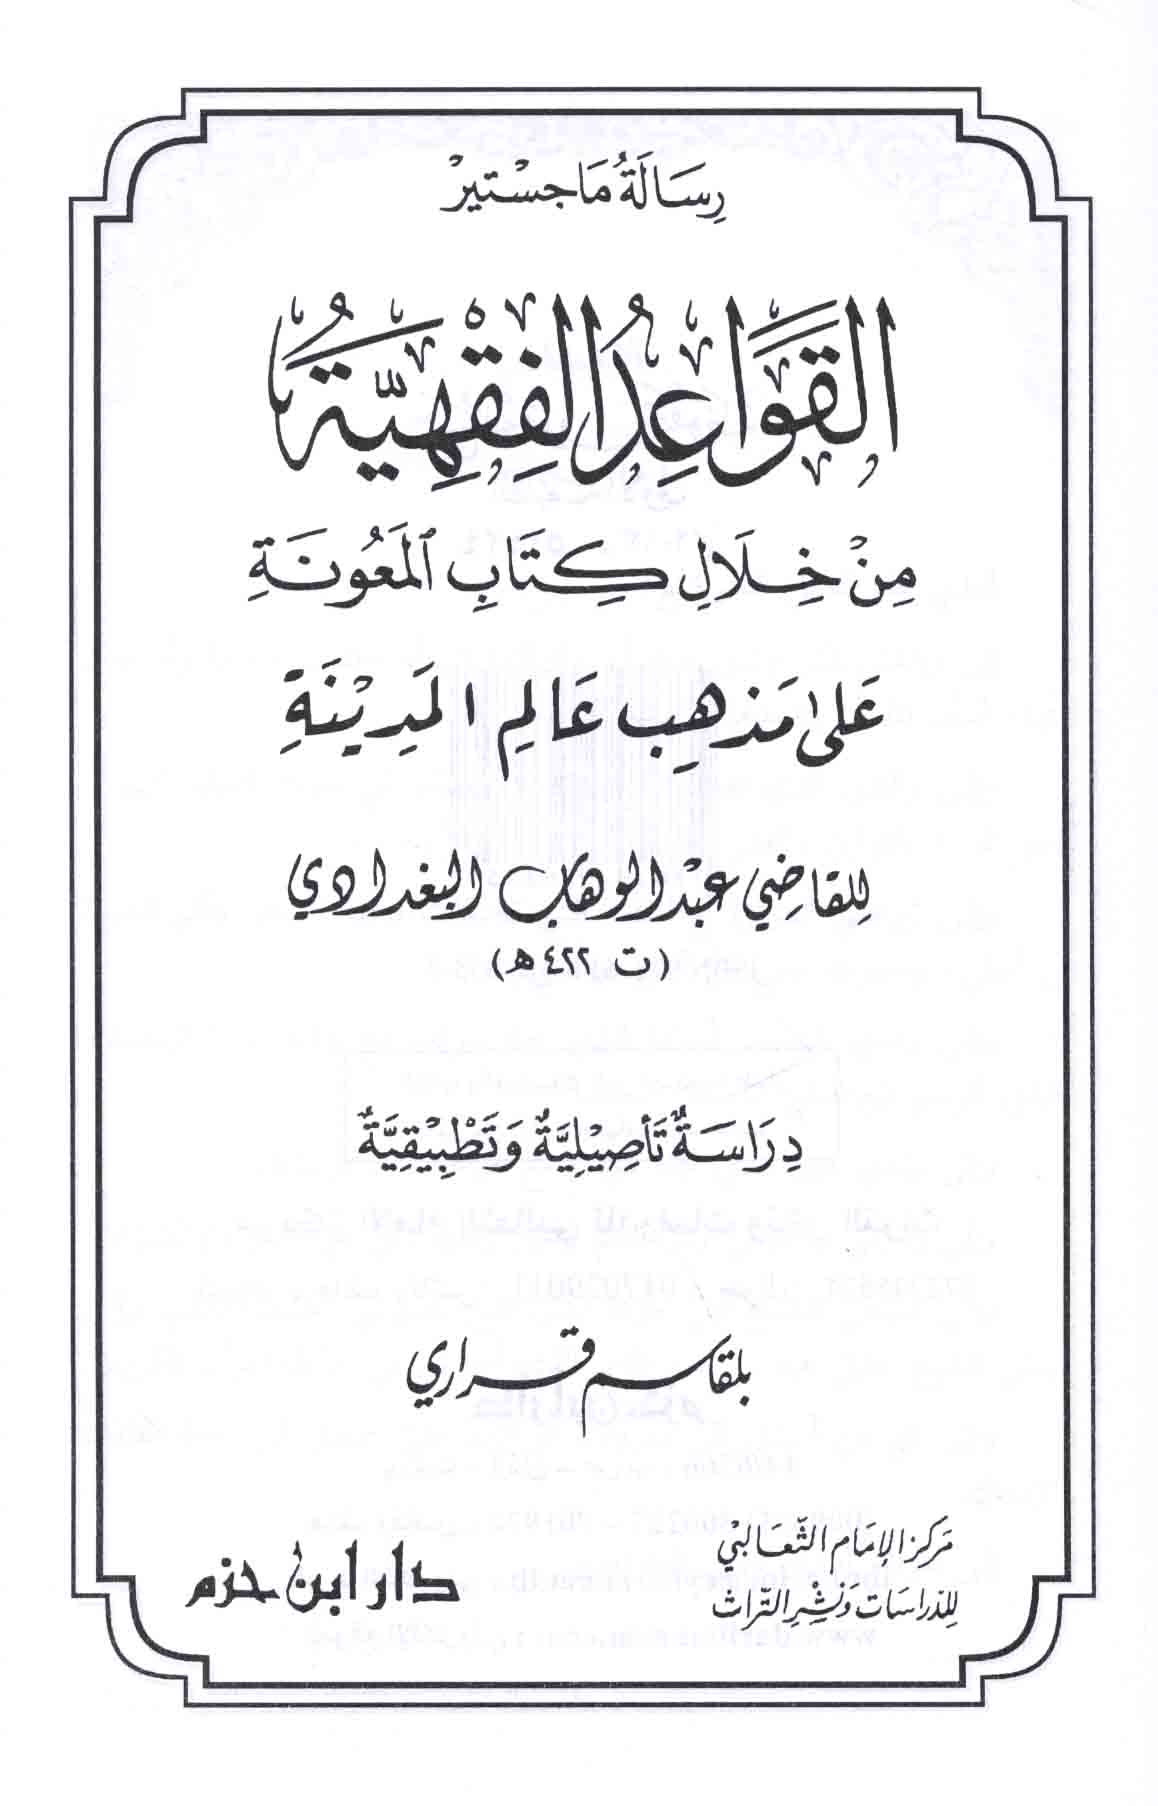 رِسَالَةُ مَاجِسْتِيرْ
القَوَاعِدُ الفِقْهِيَّةُ
مِنْ خِلَالِ كِتَابِ المَعُونَةِ
عَلَى مَذْهِبِ عَالِمِ المَدِيْنَةِ
لِلقَاضِي عَبْدالوهاب البغدادي
(ت ٤٢٢ هـ)
دِرَاسَةٌ تَأصِيْلِيَّةٌ وَتَطْبِيْقِيَّةٌ
بلقاسم قراري
مَركز الإمَام الثَّعَالِبيْ
للدّراسَات وَنشْرِ التّراث
دار ابن حزم